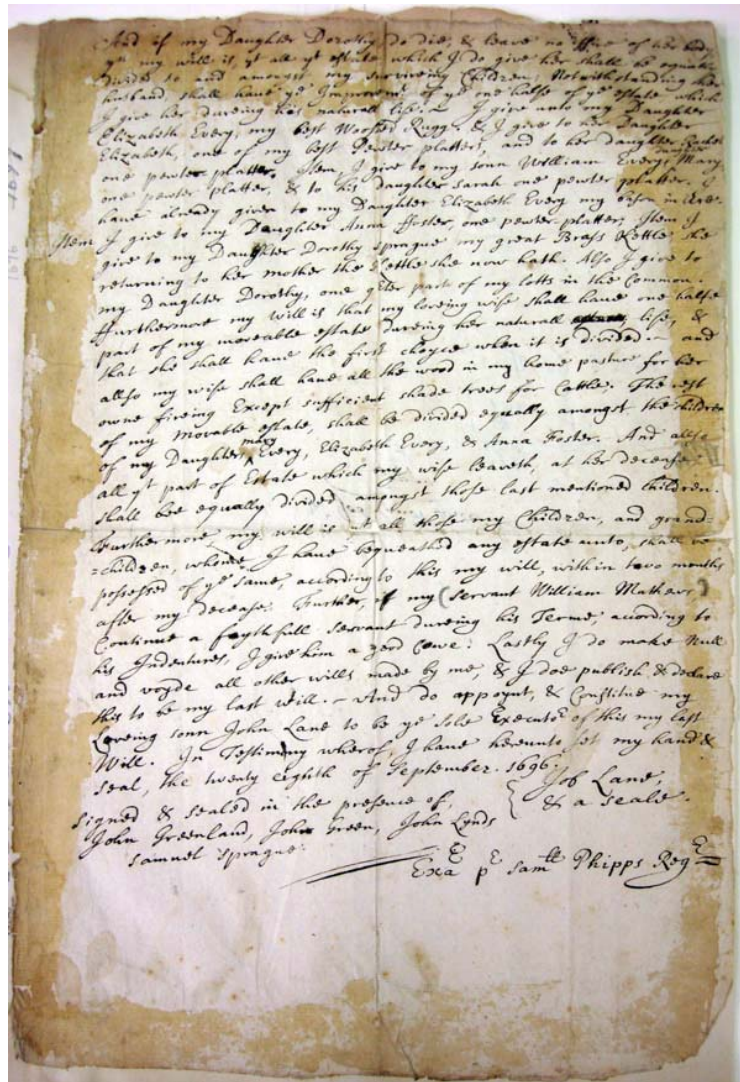 And if my Daughter Dorothy do die, & leave no Issue of her body
yn my will is, yt all yt estate which I do give her shall be equally
divided to and amongst my surviveing Children, Notwithstanding her
husband, shall have ye Improvemt of ye one halfe of ye estate which
I give her dureing his naturall life:~ I give unto my Daughter
Elizabeth Every, my best Rugg. & I give to her Daughter
Elizabeth, one of my best Pewter platters, and to her daughter Rachel
one pewter platter. Item, I give to my sonn William Every, daughter Mary
one pewter platter, & to his daughter sarah one pewter platter. I
have already given to my Daughter Elizabeth Every my
Item I give to my Daughter Anna ffoster, one pewter platter; Item I
give to my Daughter Dorothy sprague my great Brass Kettle she
returning to her mother the Kettle she now hath. Also I give to
my Daughter Dorothy, one qter part of my lotts in the Common.
ffurthermore my will is that my loveing wife shall have one halfe
part of my moveable estate dureing her naturall life, &
that she shall have the first choyce when it is divided ~ and
allso my wife shall have all the wood in my home pasture for her
owne fireing Except sufficient shade trees for Cattle. The rest
of my Movable estate, shall be divided equally amongst the children
of my Daughter mary Every, Elizabeth Every, & Anna Foster. And allso
all yt part of Estate which my wife leaveth, at her decease
shall bee equally divided amongst those last mentioned Children.
ffurthermore my will is yt all those my Children, and grand=
=children, whome I have bequeathed any estate unto, shall be
possesed of ye same, according to this my will, within two months
after my decease. Further, if my (servant William Mathews)
Continue a faythfull servant dureing his Terme, according to
his Indentures, I give him a good Cowe: Lastly I do make Null
and voyde all other wills made by me, & I doe publish & declare
this to be my last will. ~ And do appoynt, & Constitue my
Loveing sonn John Lane to be ye sole Executor of this my last
Will. In Testimony wherof, I have hereunto set my hand &
seal, the twenty eighth of September. 1696.
Job Lane
& a seale.
signed & sealed in the presence of,
John Greenland, John Green, John Lynds
samuel sprague.
Exa pr samll Phipps Regr